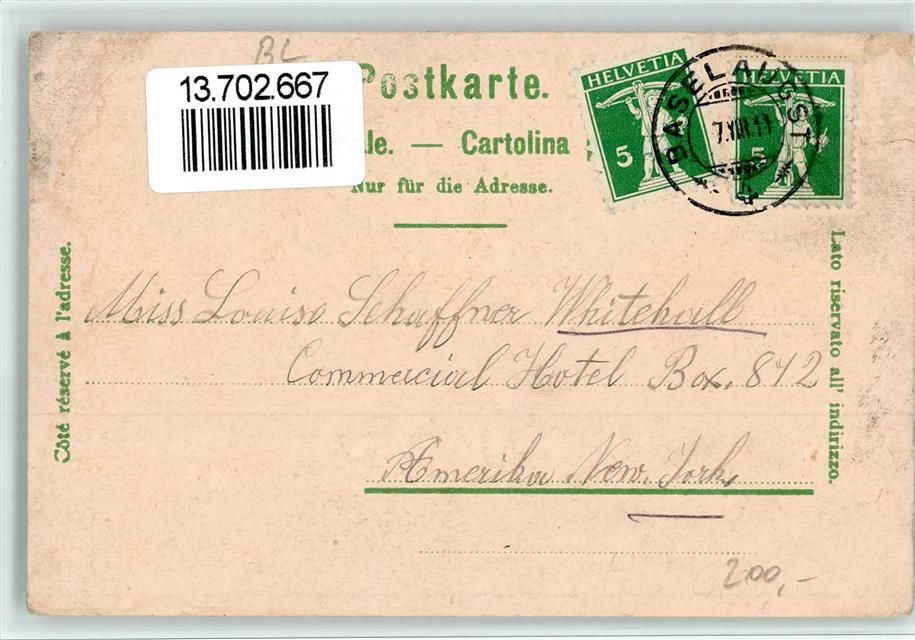 BL
13.702.667
Postkarte.
ale. — Cartolina
Nur für die Adresse.
HELVETIA
5
HELVETIA
5
BASELAUGST
7.VIII.11
Côté réservé à l'adresse.
Lato riservato all' indirizzo.
Miss Louise Schaffner Whitehall
Commercial Hotel Box. 842
Amerika New. York,
200,-